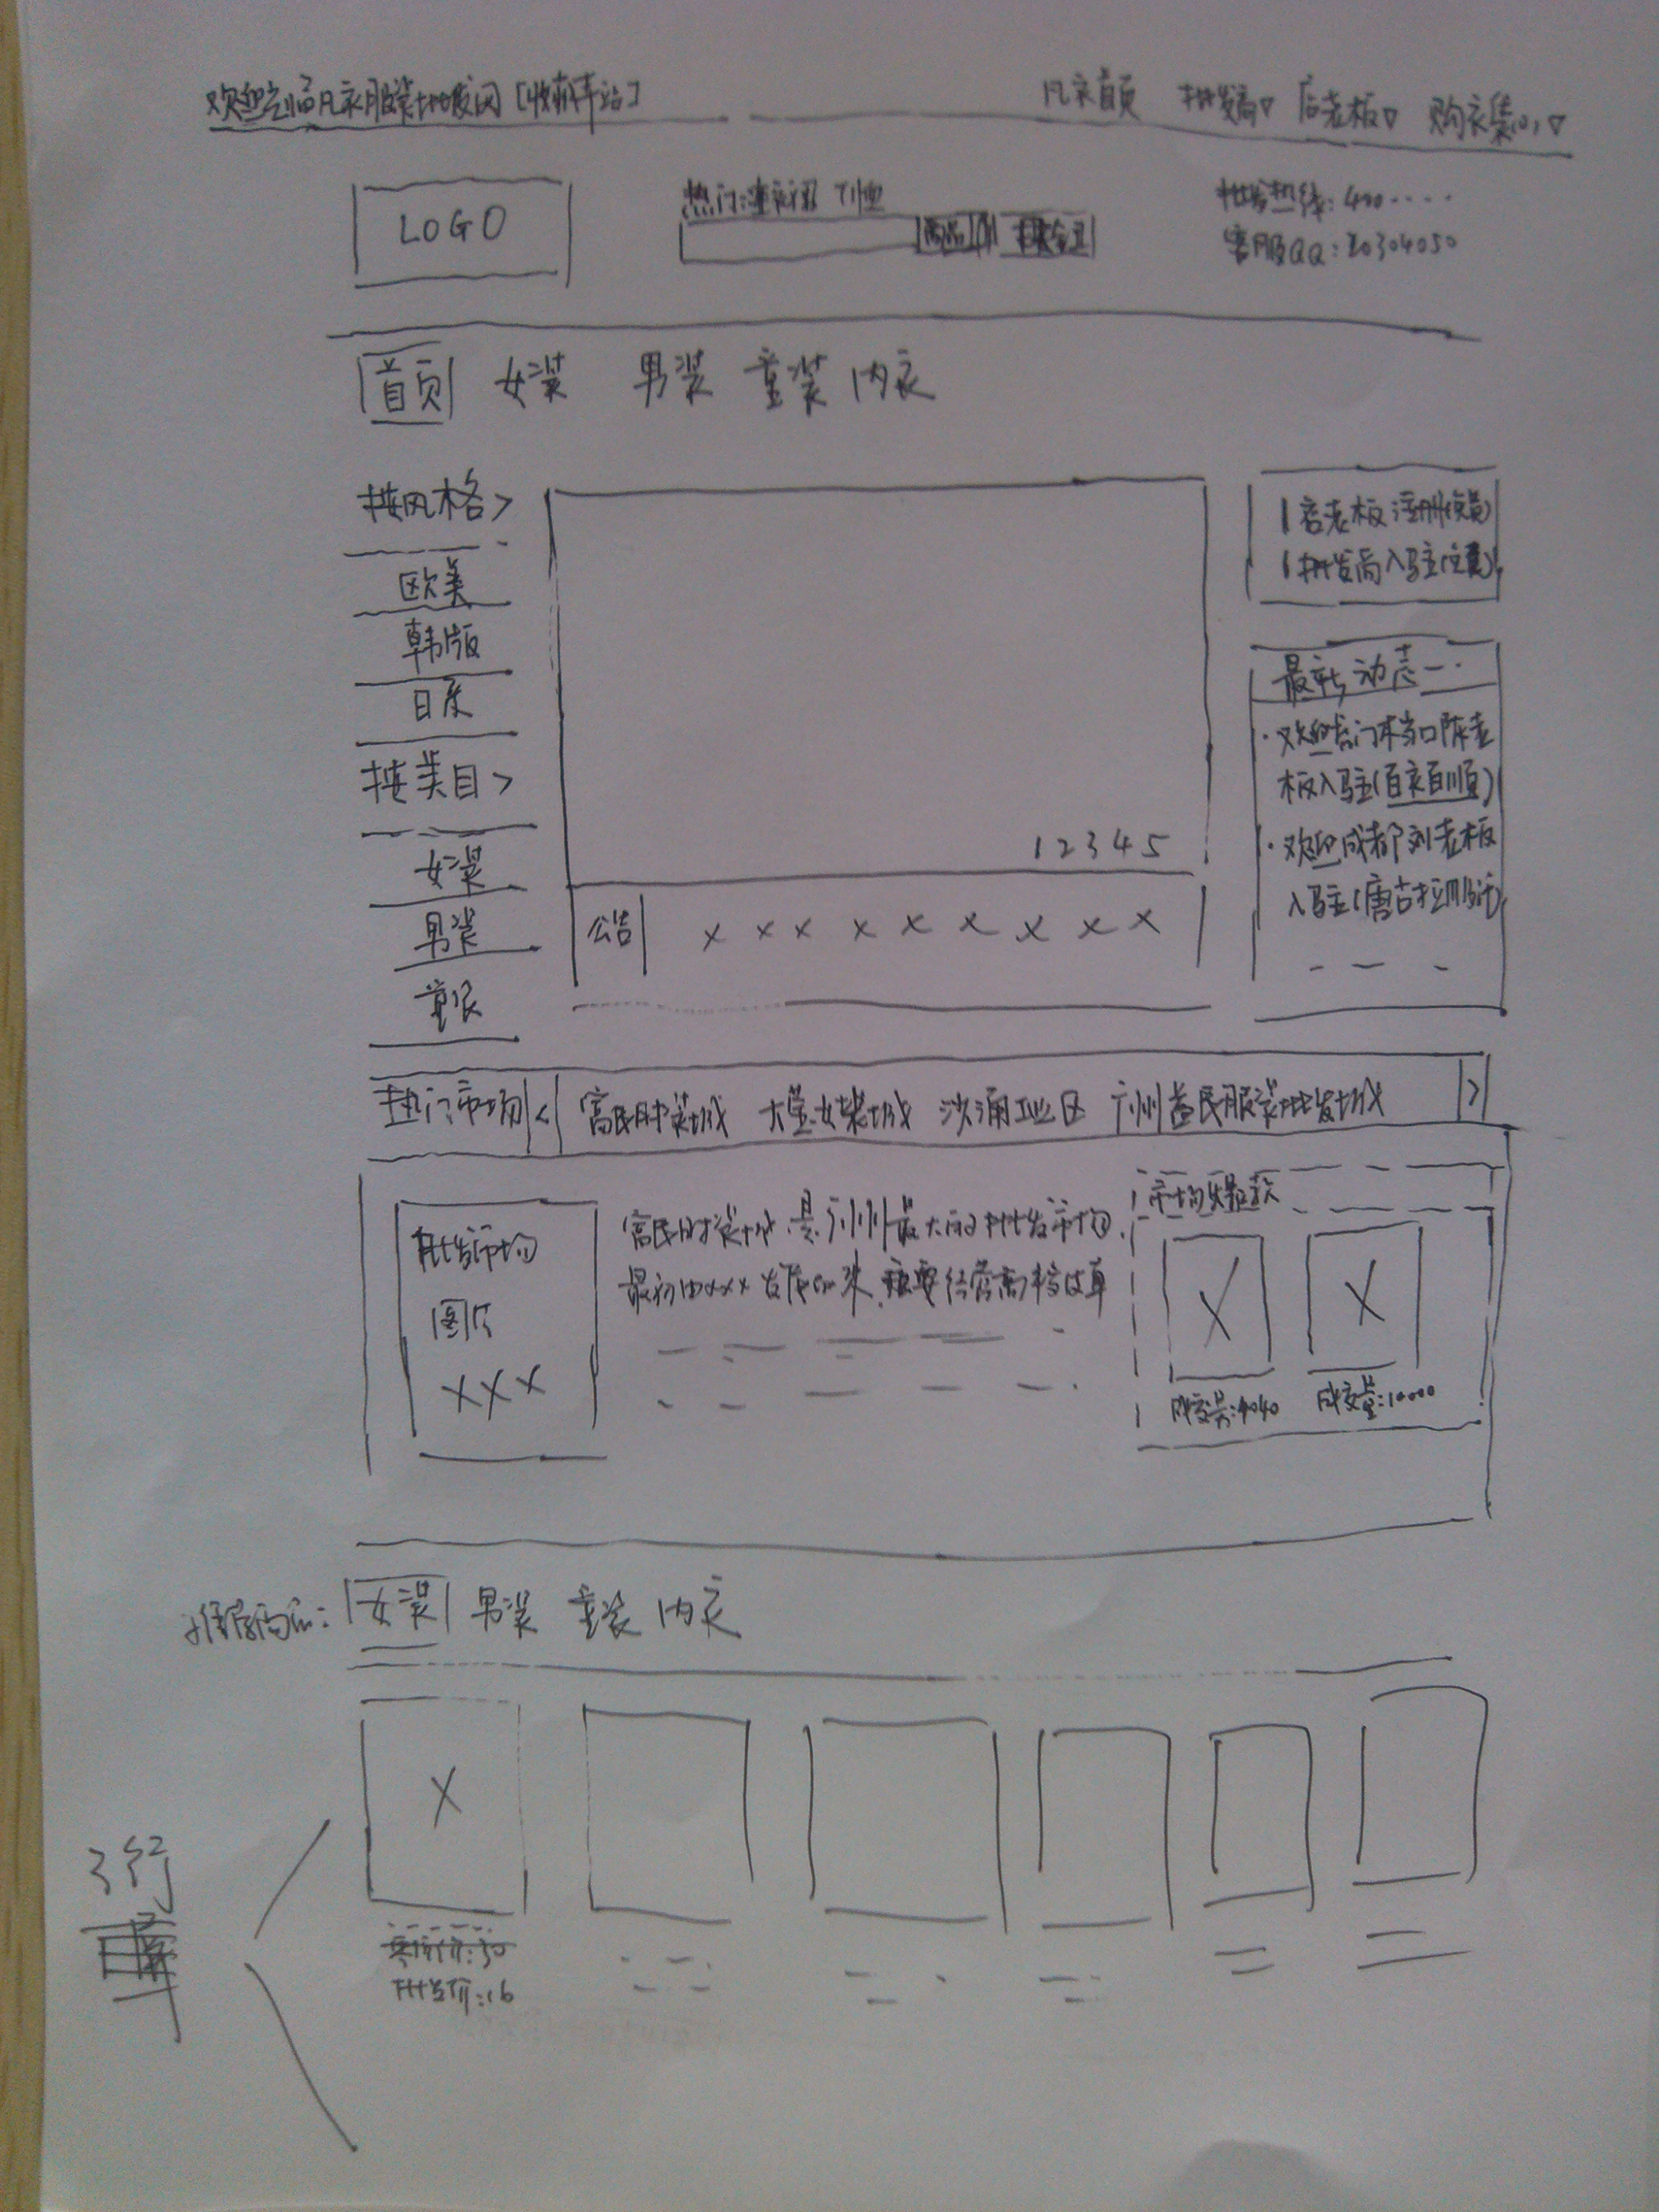 欢迎光临凡衣服装批发网 [收藏本站]
凡衣首页 批发商▽ 店老板▽ 购衣篮(0)▽
LOGO
热门:连衣裙 T恤
商品
批发热线: 400·····
客服QQ: 20304050
首页 女装 男装 童装 内衣
按风格>
欧美
韩版
日系
按类目>
女装
男装
童装
1 2 3 4 5
公告 × × × × × × × × ×
店老板注册(免费)
批发商入驻(免费)
最新动态
·欢迎虎门本当口陈老
板入驻(百衣百顺)
·欢迎成都刘老板
入驻(唐古拉
热门市场 < 富民时装城 大莹女装城 沙涌工业区 广州益民服装批发城 >
批发市场
图片
XXX
富民时装城 是广州最大的批发市场,
最初由xxx发展而来, 主要经营高档皮草
市场爆款
X
X
成交量:4040
成交量:10000
推荐商品: 女装 男装 童装 内衣
X
3行
零售价:30
批发价:16